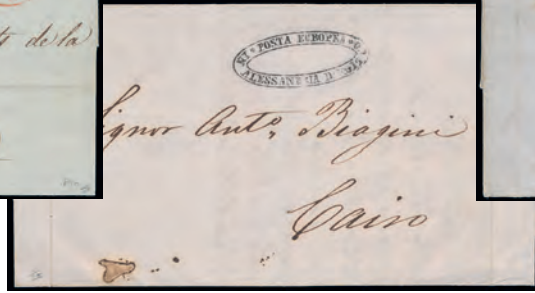 ts de la
POSTA EUROPEA
ALESSANDRIA D'
ignor Anto. Biagini
Cairo